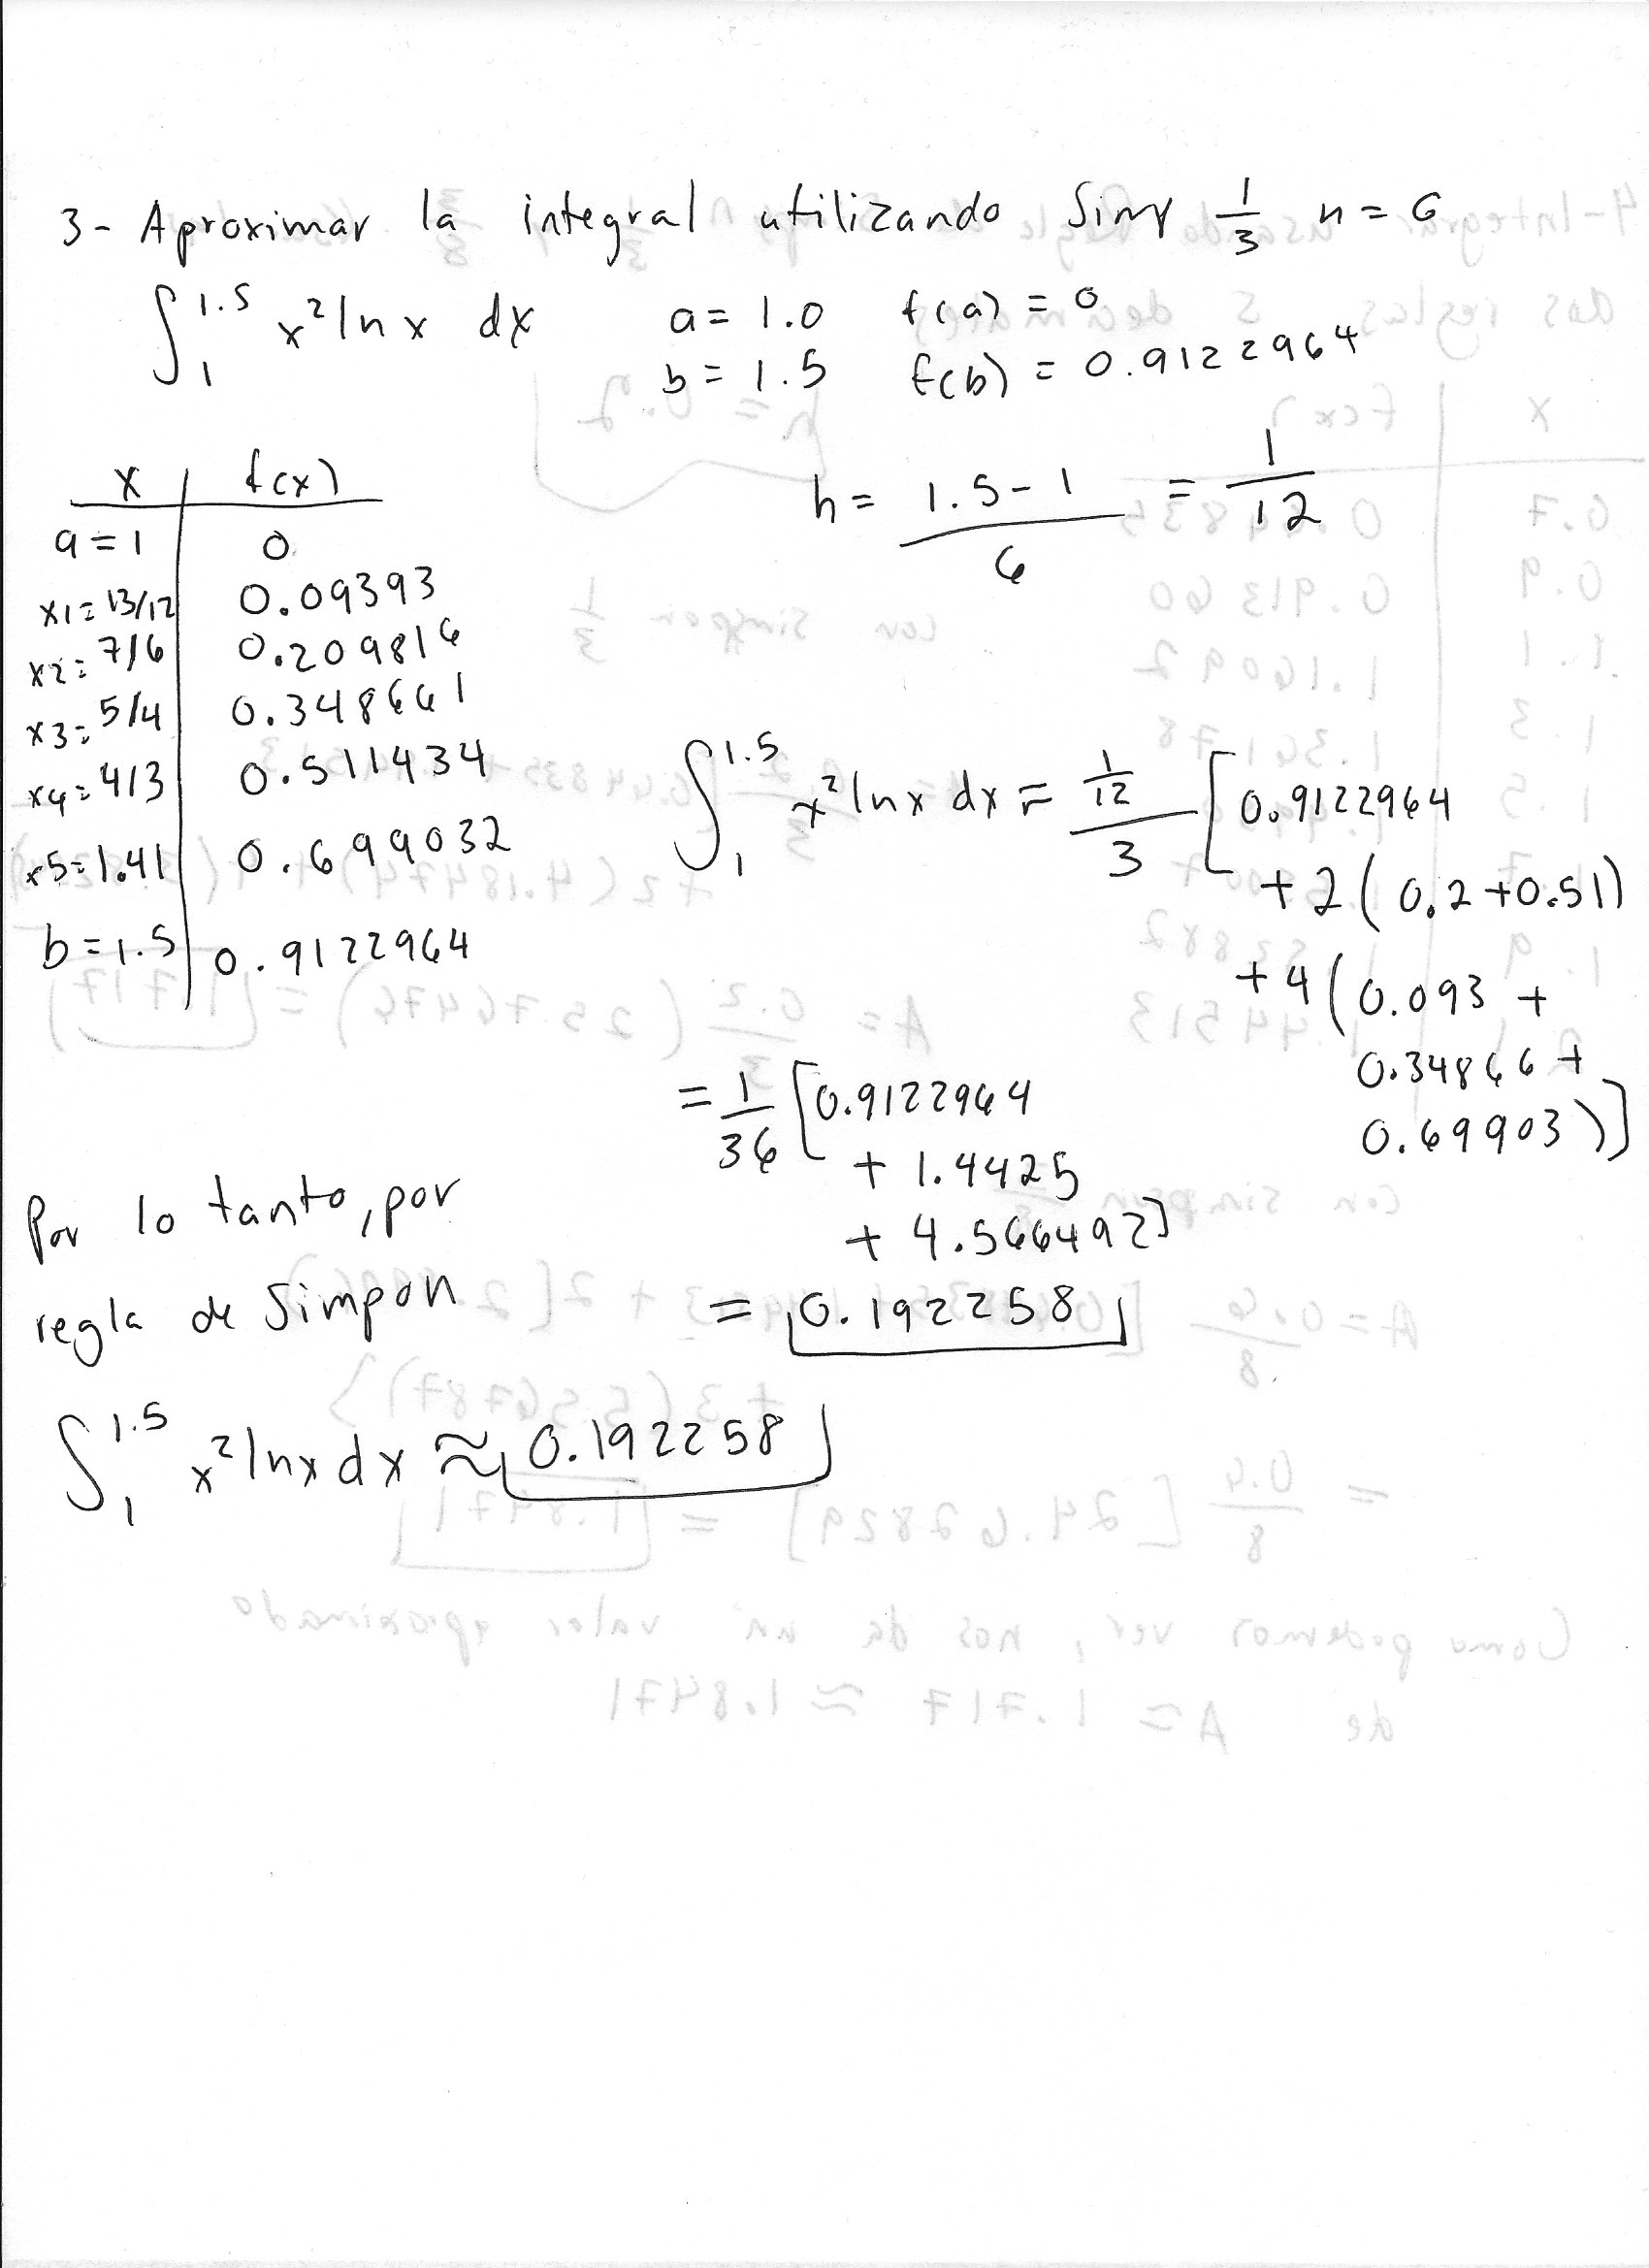 3- Aproximar la integral utilizando Simp 1/3 n = 6
∫₁^1.5 x² ln x dx a = 1.0 f(a) = 0
b = 1.5 f(b) = 0.9122964
x f(x)
h = (1.5 - 1)/6 = 1/12
a = 1 0
x1 = 13/12 0.09393
x2 = 7/6 0.209816
x3 = 5/4 0.348661
x4 = 4/3 0.511434
x5 = 1.41 0.699032
b = 1.5 0.9122964
∫₁^1.5 x² ln x dx = (1/12)/3 [0.9122964
+ 2(0.2 + 0.51)
+ 4(0.093 +
0.34866 +
0.69903)]
= 1/36 [0.9122964
+ 1.4425
+ 4.566492]
= 0.192258
Por lo tanto, por
regla de Simpon
∫₁^1.5 x² ln x dx ≈ 0.192258